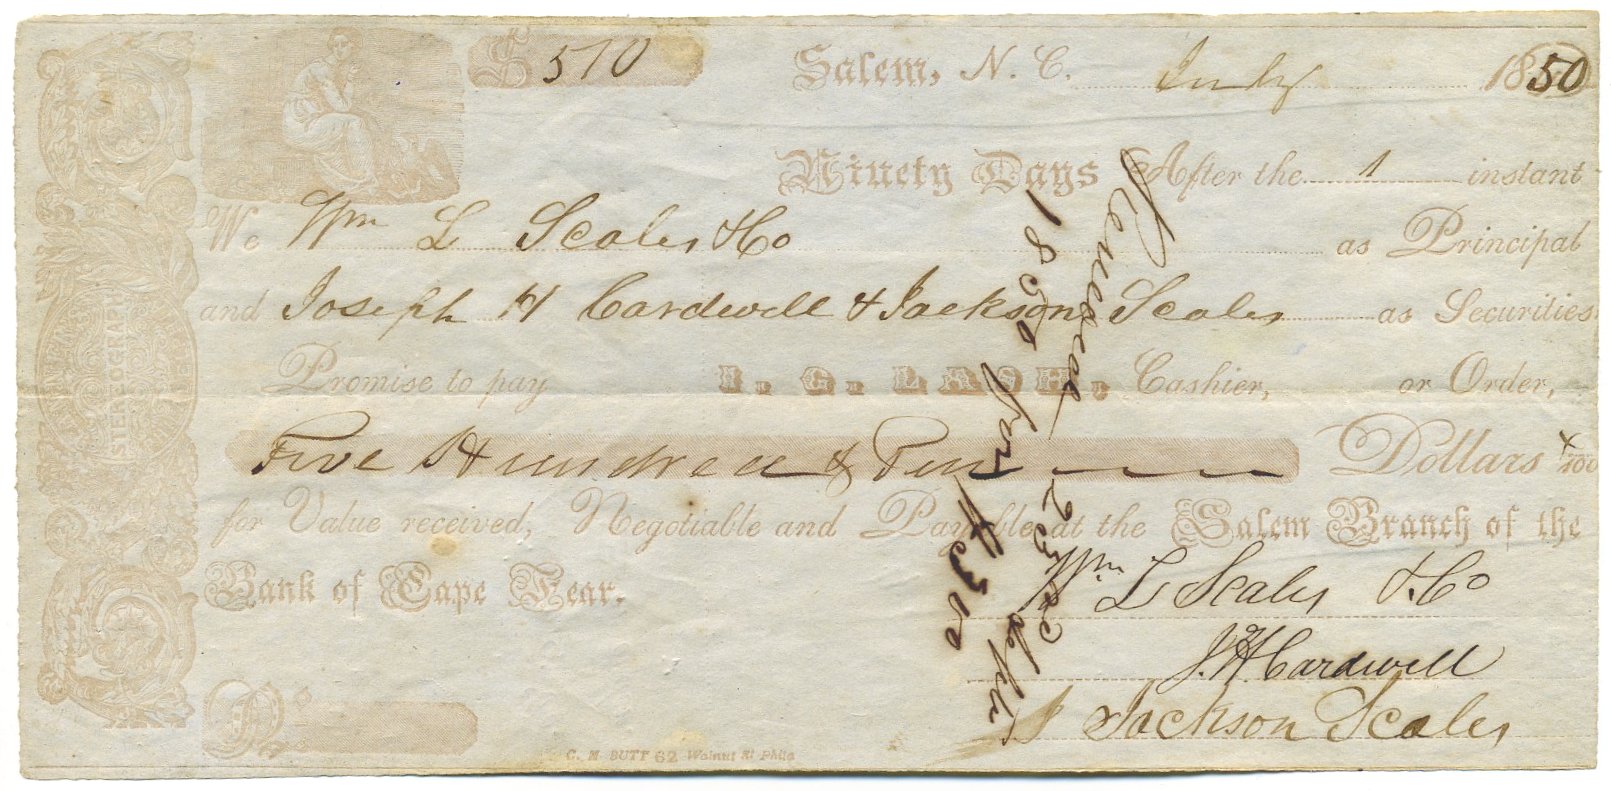 $ 510 Salem, N. C. July 1850
Ninety Days After the 1 instant
We Wm L Scales & Co as Principal
and Joseph H Cardwell & Jackson Scales as Securities
Promise to pay I. G. LASH, Cashier, or Order,
Five Hundred & Ten Dollars /100
for Value received, Negotiable and Payable at the Salem Branch of the
Bank of Cape Fear.
Wm L Scales & Co
J. H. Cardwell
Jackson Scales
No
C. M. BUTT 62 Walnut St Phila
STEREOGRAPH
Renewed 23rd
1850 for $300